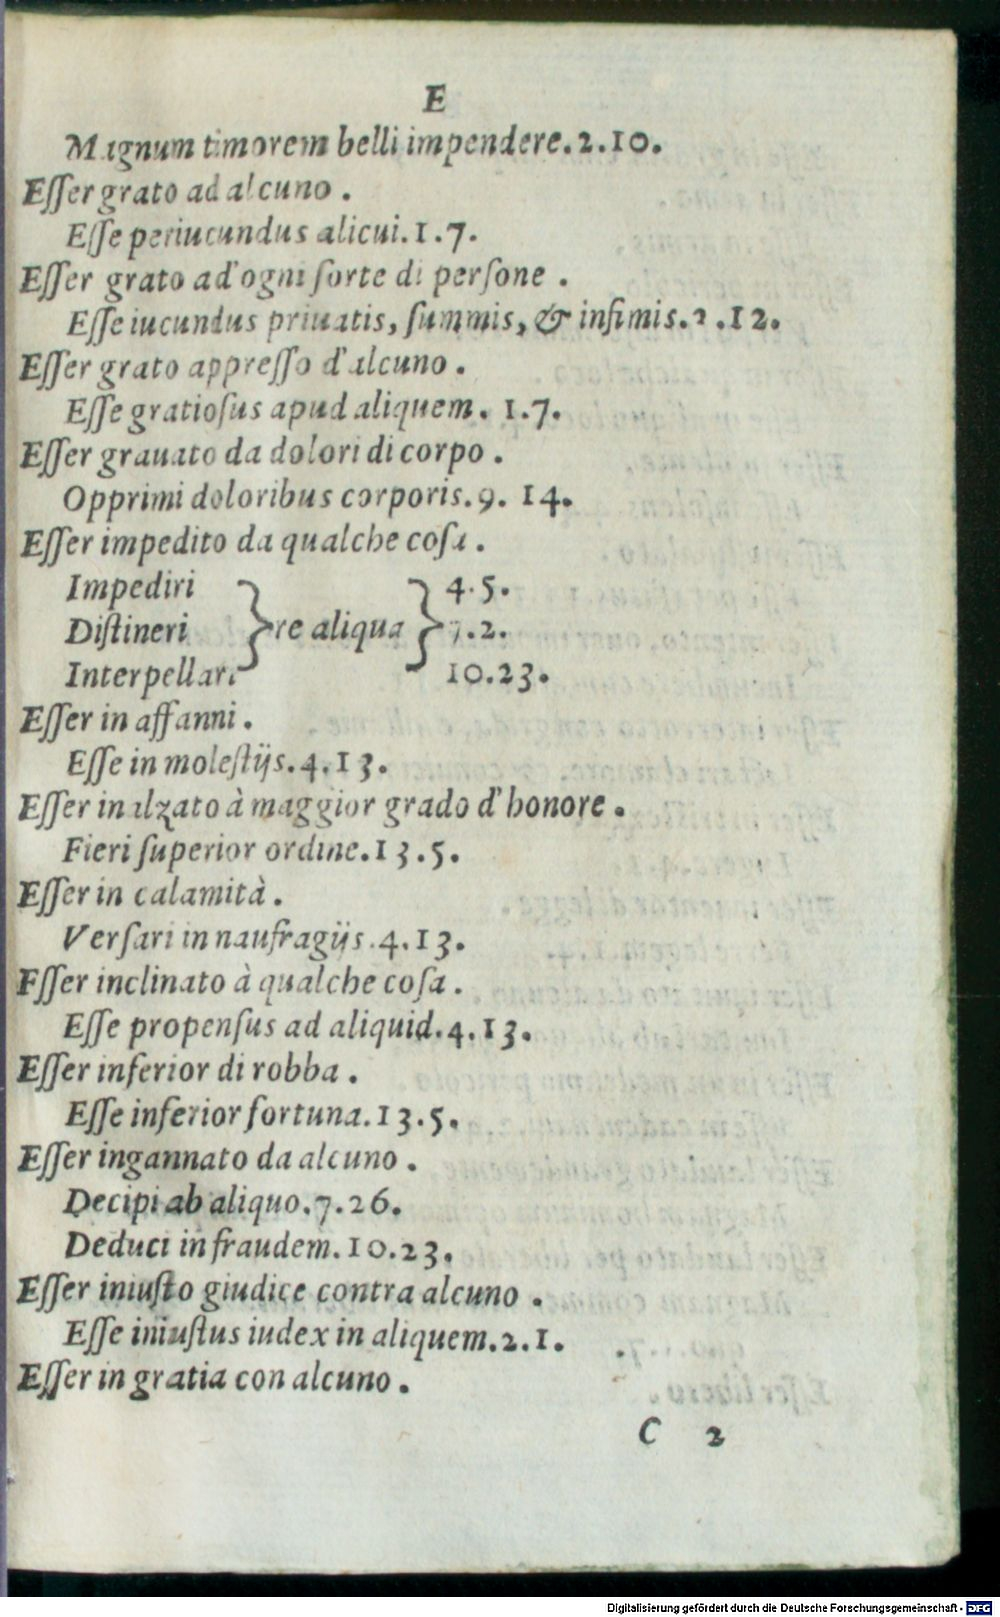 E
Magnum timorem belli impendere.2.10.
Esser grato ad alcuno.
Esse periucundus alicui.1.7.
Esser grato ad'ogni sorte di persone.
Esse iucundus priuatis, summis, & infimis.2.12.
Esser grato appresso d'alcuno.
Esse gratiosus apud aliquem. 1.7.
Esser grauato da dolori di corpo.
Opprimi doloribus corporis.9. 14.
Esser impedito da qualche cosa.
Impediri 4.5.
Distineri } re aliqua } 7.2.
Interpellari 10.23.
Esser in affanni.
Esse in molestijs.4.13.
Esser in alzato à maggior grado d'honore.
Fieri superior ordine.13.5.
Esser in calamità.
Versari in naufragijs.4.13.
Esser inclinato à qualche cosa.
Esse propensus ad aliquid.4.13.
Esser inferior di robba.
Esse inferior fortuna.13.5.
Esser ingannato da alcuno.
Decipi ab aliquo.7.26.
Deduci in fraudem.10.23.
Esser iniusto giudice contra alcuno.
Esse iniustus iudex in aliquem.2.1.
Esser in gratia con alcuno.
C 2
Digitalisierung gefördert durch die Deutsche Forschungsgemeinschaft - DFG